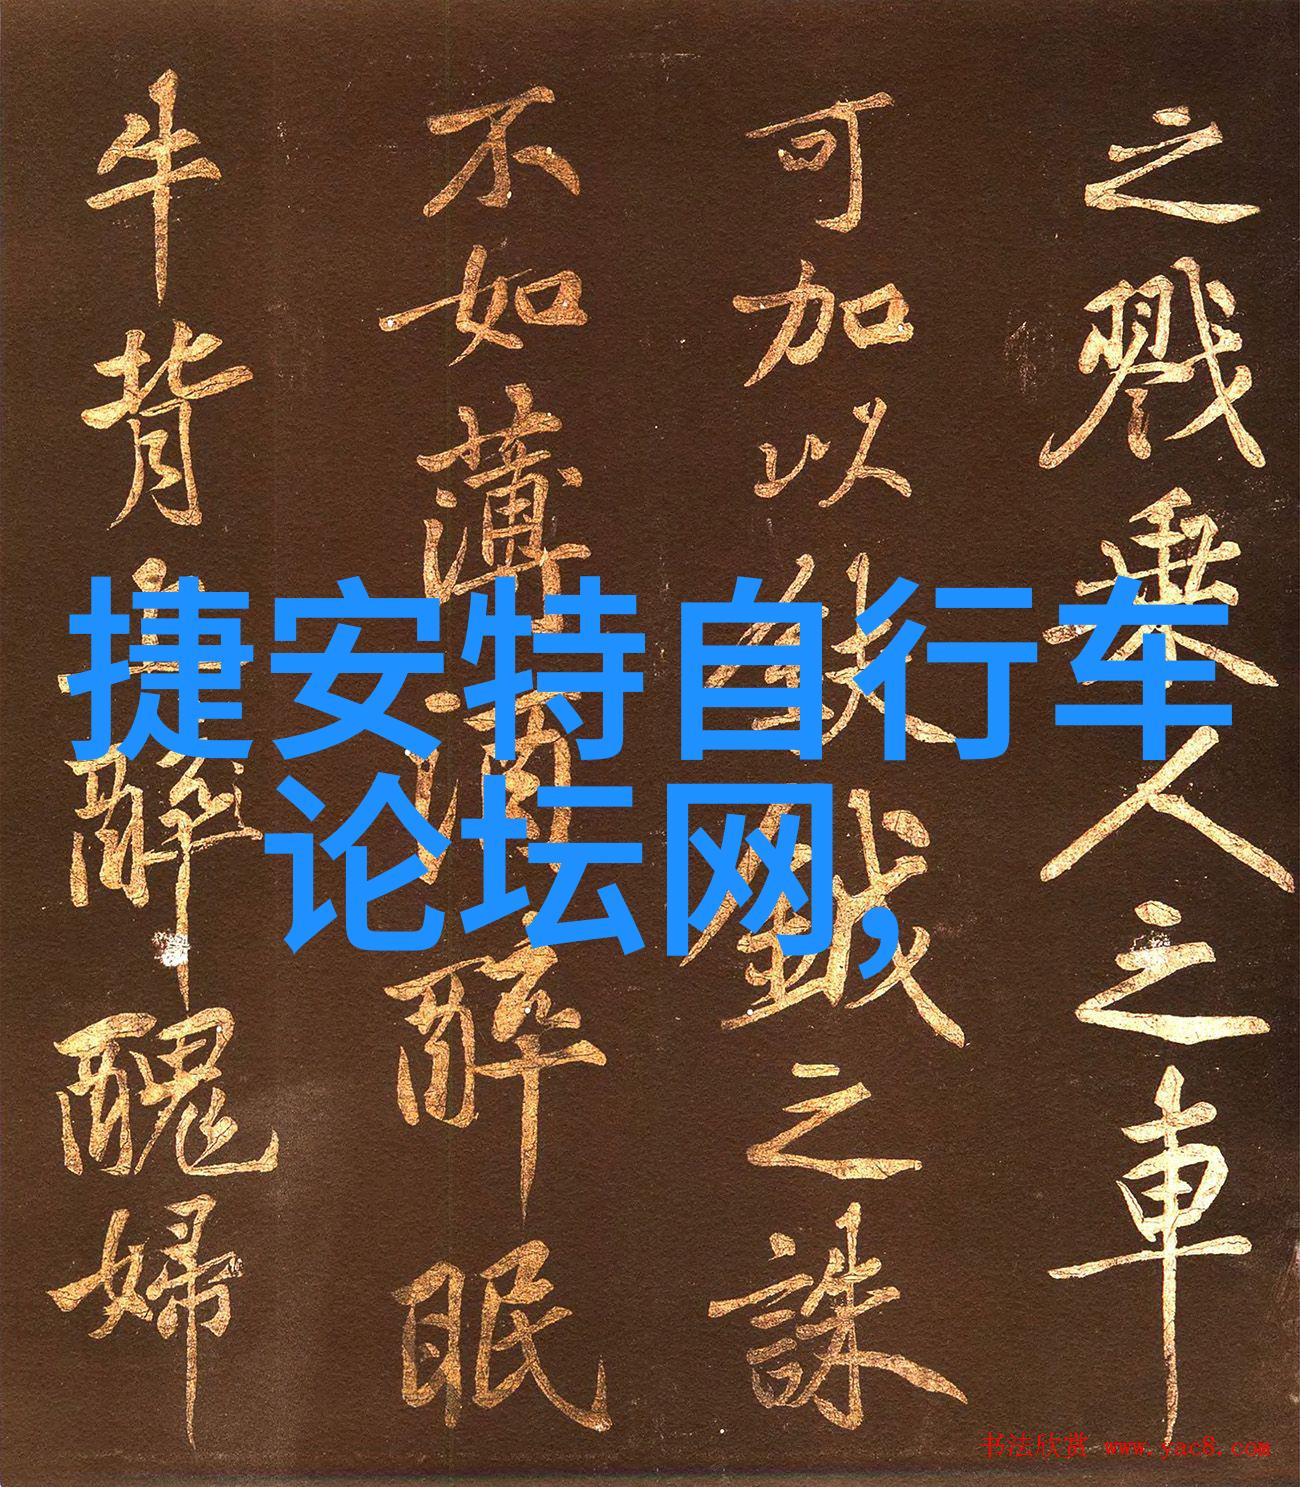 之戮乘人之車
可加以鈇鉞之誅
不如薄酒醉眠
牛背上醉醜婦
捷安特自行车
论坛网,
书法欣赏 www.yac8.com